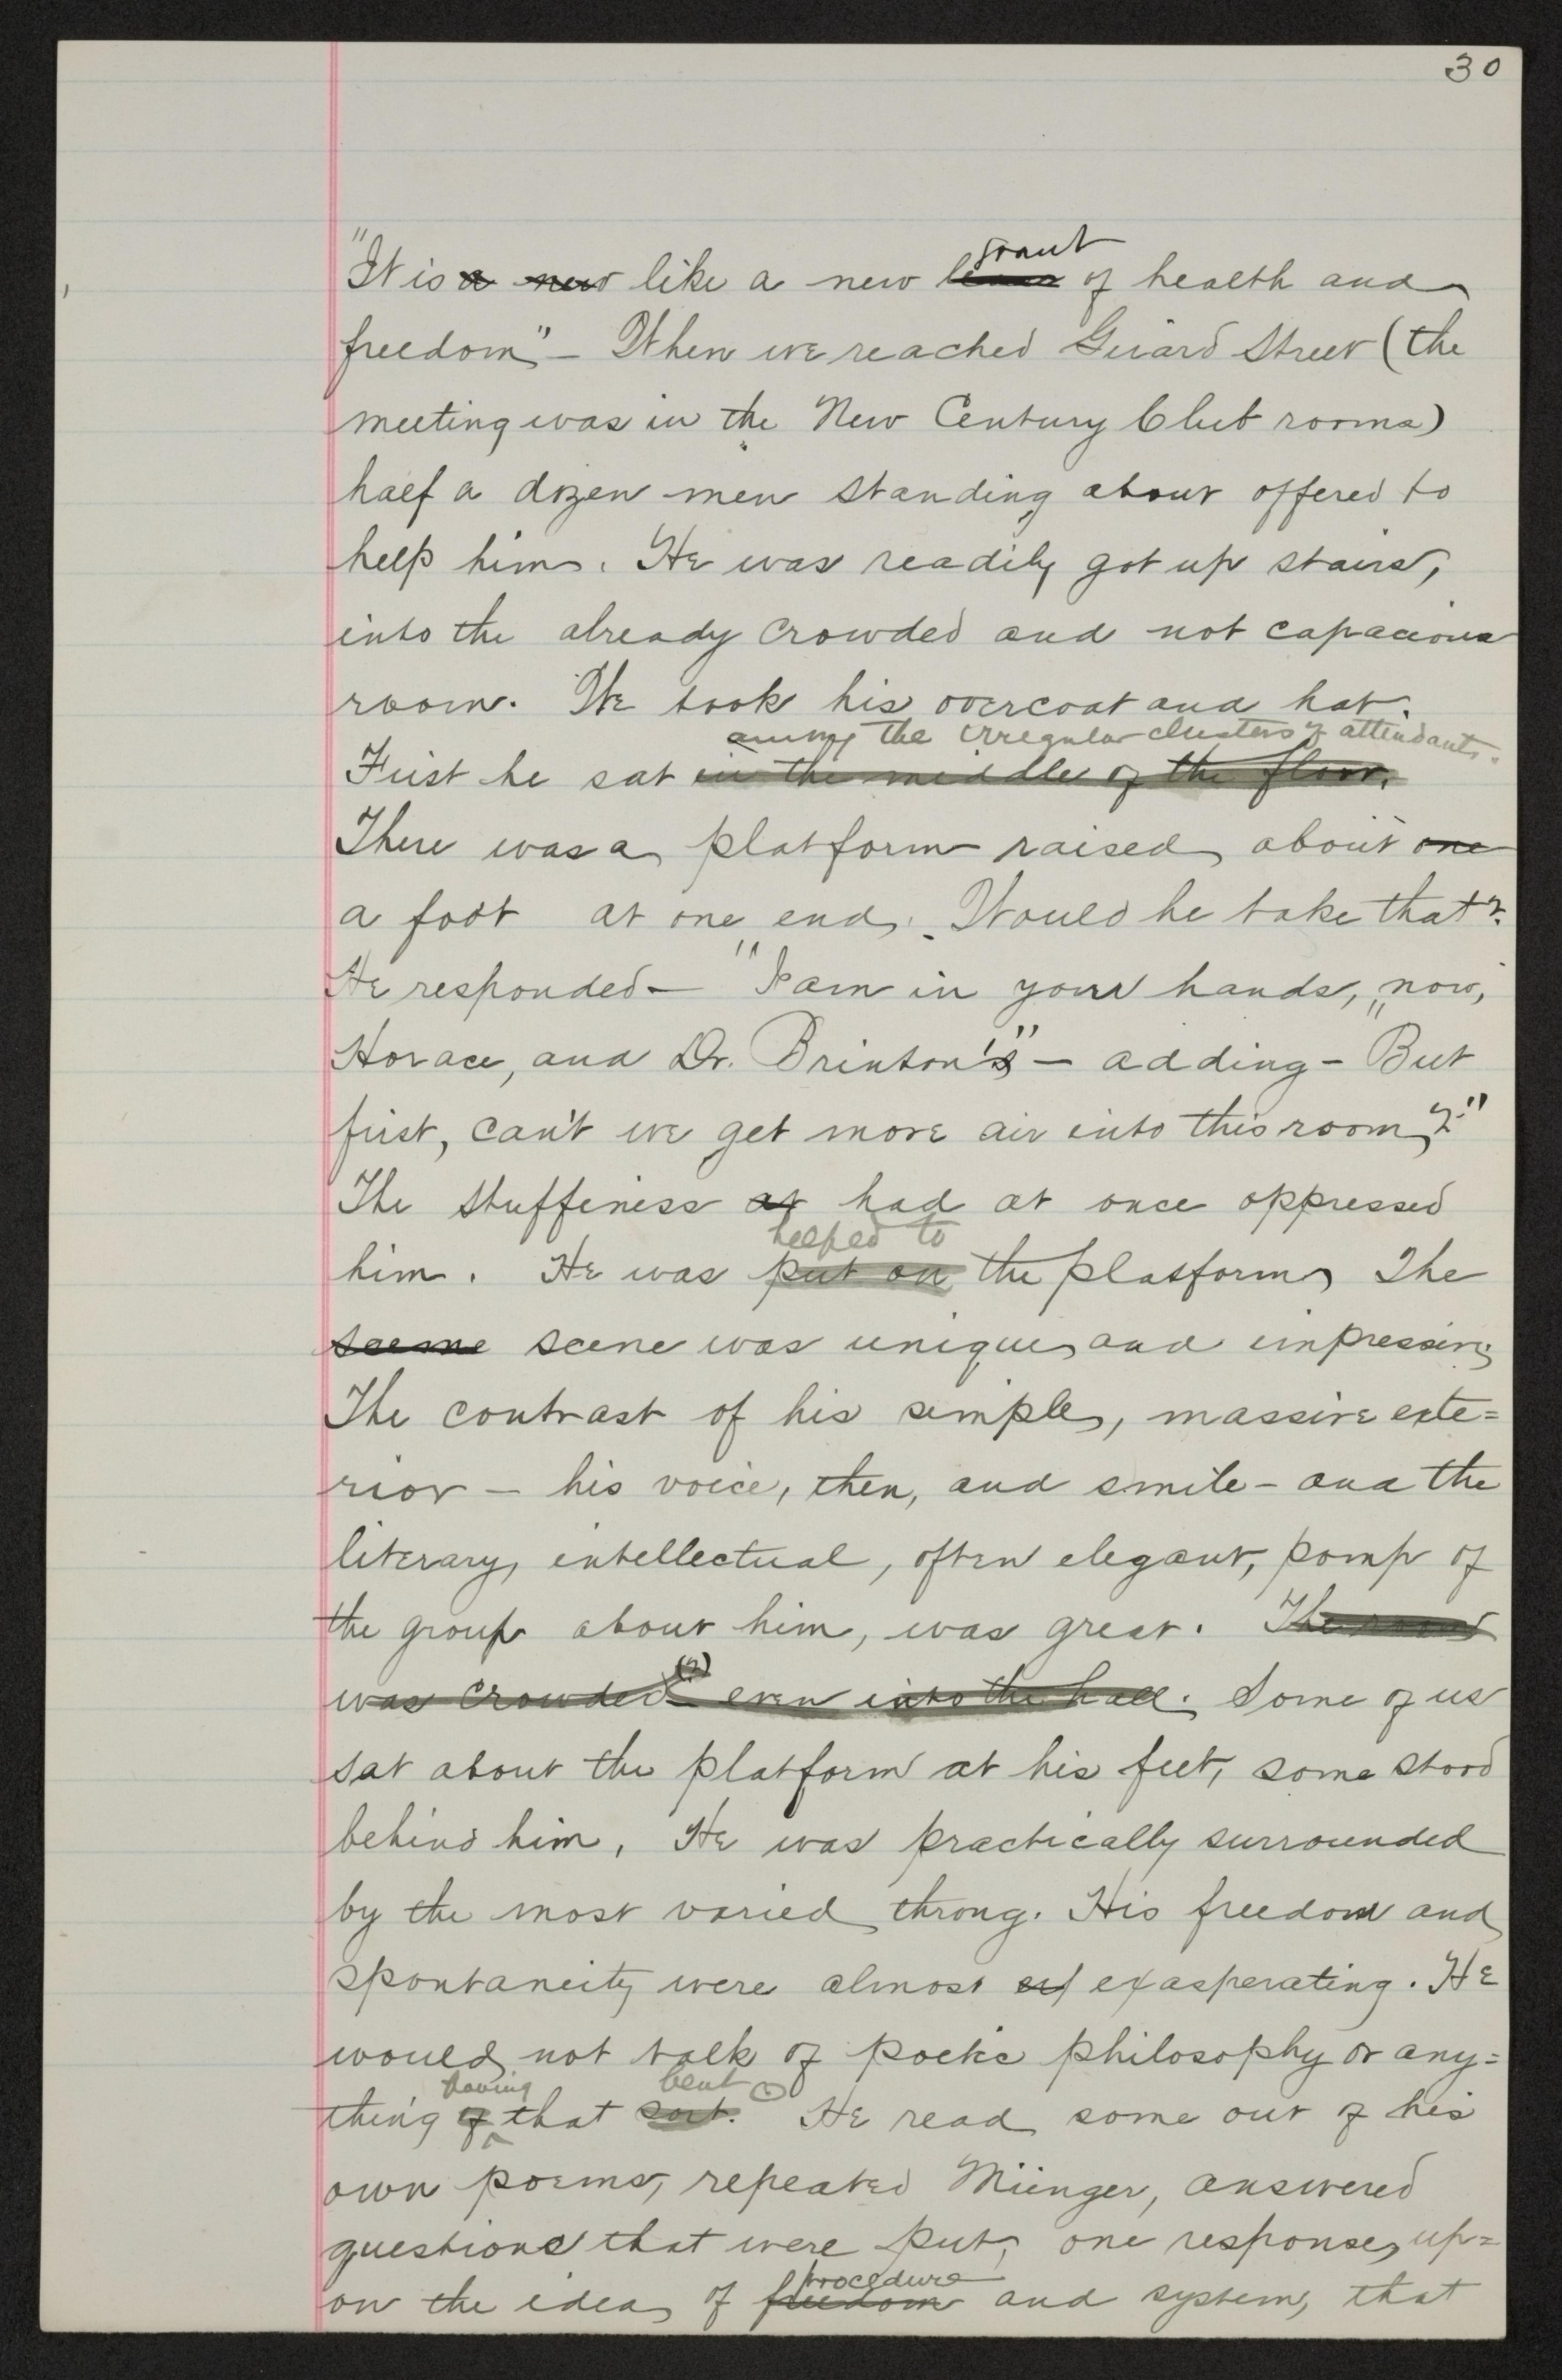 30
"It is a new like a new lease grant of health and
freedom" — When we reached Girard Street (the
meeting was in the New Century Club rooms)
half a dozen men standing about offered to
help him. He was readily got up stairs,
into the already crowded and not capacious
room. We took his overcoat and hat.
among the irregular clusters of attendants.
First he sat in the middle of the floor.
There was a platform raised about one
a foot at one end. Would he take that?
He responded — "I am in your hands, now,
Horace, and Dr. Brinton's" — adding — "But
first, can't we get more air into this room?"
The stuffiness at had at once oppressed
helped to
him. He was put on the platform, The
sceme scene was unique and impressive;
The contrast of his simple, massive exte=
rior — his voice, then, and smile — and the
literary, intellectual, often elegant, pomp of
the group about him, was great. The room
was crowded — even into the hall. Some of us
sat about the platform at his feet, some stood
behind him. He was practically surrounded
by the most varied throng. His freedom and
spontaneity were almost exasperating. He
would not talk of poetic philosophy or any=
having bent
thing of that sort. He read some out of his
own poems, repeated Münger, answered
questions that were put, one response, up=
procedure
on the idea of freedom and system, that